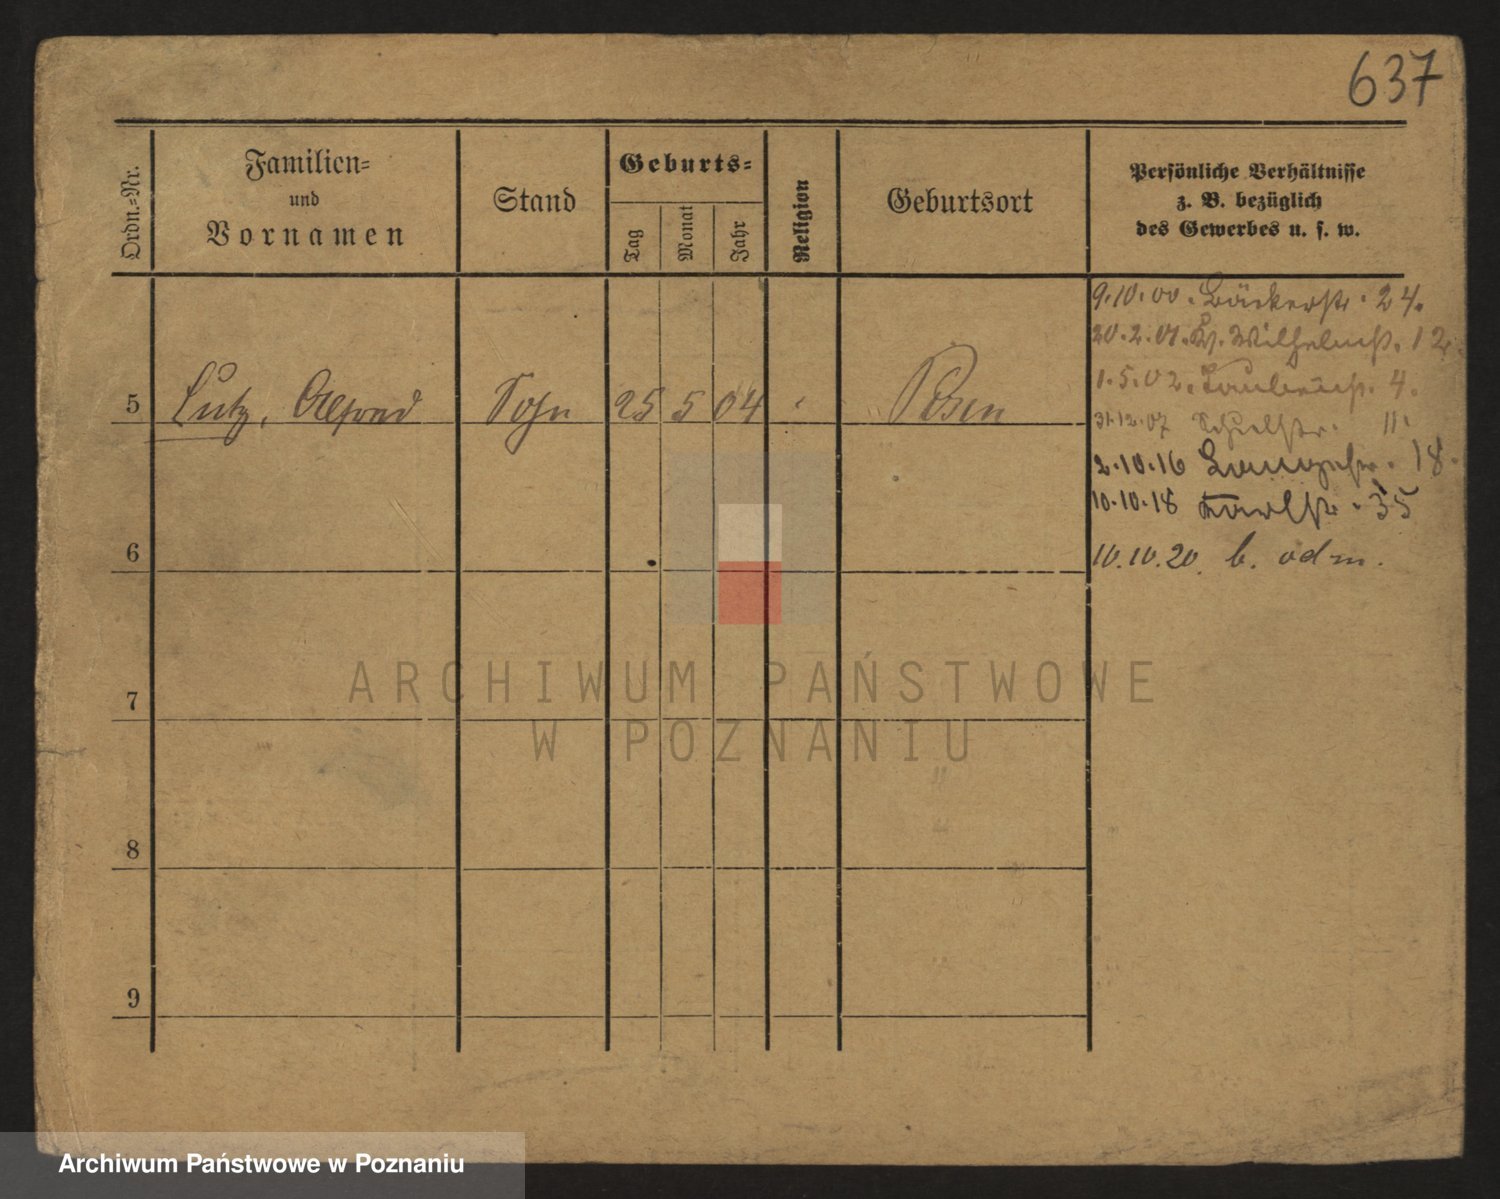 637
Ordn.-Nr.
Familien-
und
Vornamen
Stand
Geburts-
Tag
Monat
Jahr
Religion
Geburtsort
Persönliche Verhältnisse
z. B. bezüglich
des Gewerbes u. s. w.
9.10.00. Bäckerstr. 24.
20.2.01. Wilhelmstr. 12.
1.5.02. Taubenstr. 4.
5 Lutz, Alfred Sohn 25 5 04 Posen
31.12.07 11.
2.10.16 Langestr. 18.
10.10.18 Karlstr. 35
6
10.10.20. b. odm.
7
8
9
ARCHIWUM PAŃSTWOWE
W POZNANIU
Archiwum Państwowe w Poznaniu